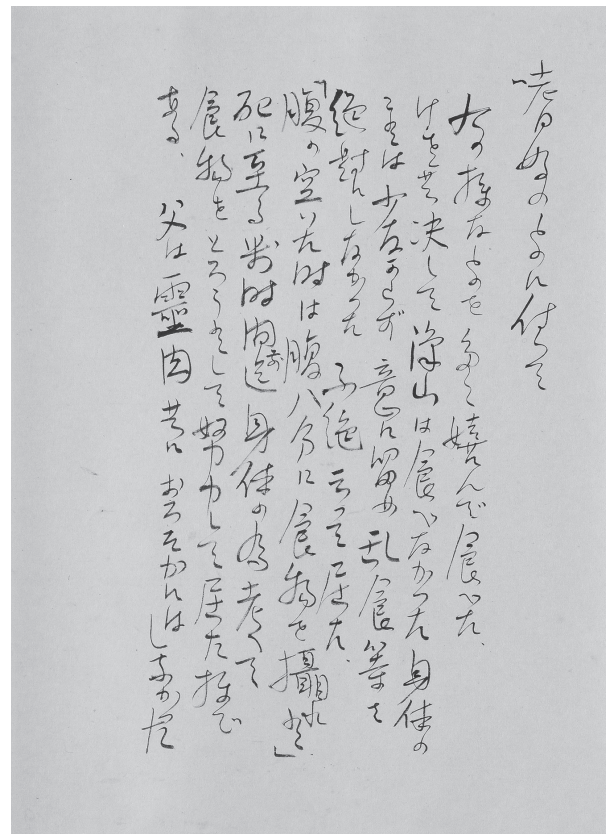 嗜好物のものに付て
右の様なものを多く嬉んで食べた、
けれ共決して澤山は食べなかった身体の
事は少なからず意に留め乱食等を
絶対にしなかった 不絶云って居た、
「腹の空いた時は腹八分に食物を攝れと」
死に至る判時間前迄身体の為考へて
食物をとろうとして努力して居た様で
ある、 父は靈肉共におろそかにはしなかった